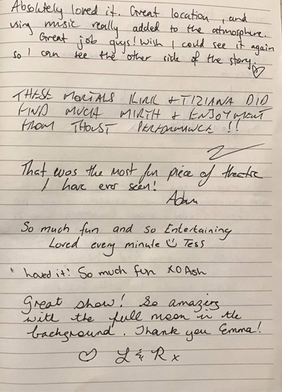 Absolutely loved it. Great location, and
using music really added to the atmosphere.
Great job guys! Wish I could see it again
so I can see the other side of the story ♡
THESE MORTALS & TIZIANA DID
FIND MUCH MIRTH & ENJOYMENT
FROM THOUST PERFORMANCE !!
That was the most fun piece of theatre
I have ever seen!
Adam
So much fun and so Entertaining
Loved every minute ☺ Tess
Loved it! So much fun XO Ash
Great show! So amazing
with the full moon in the
background. Thank you Emma!
♡ L & R x